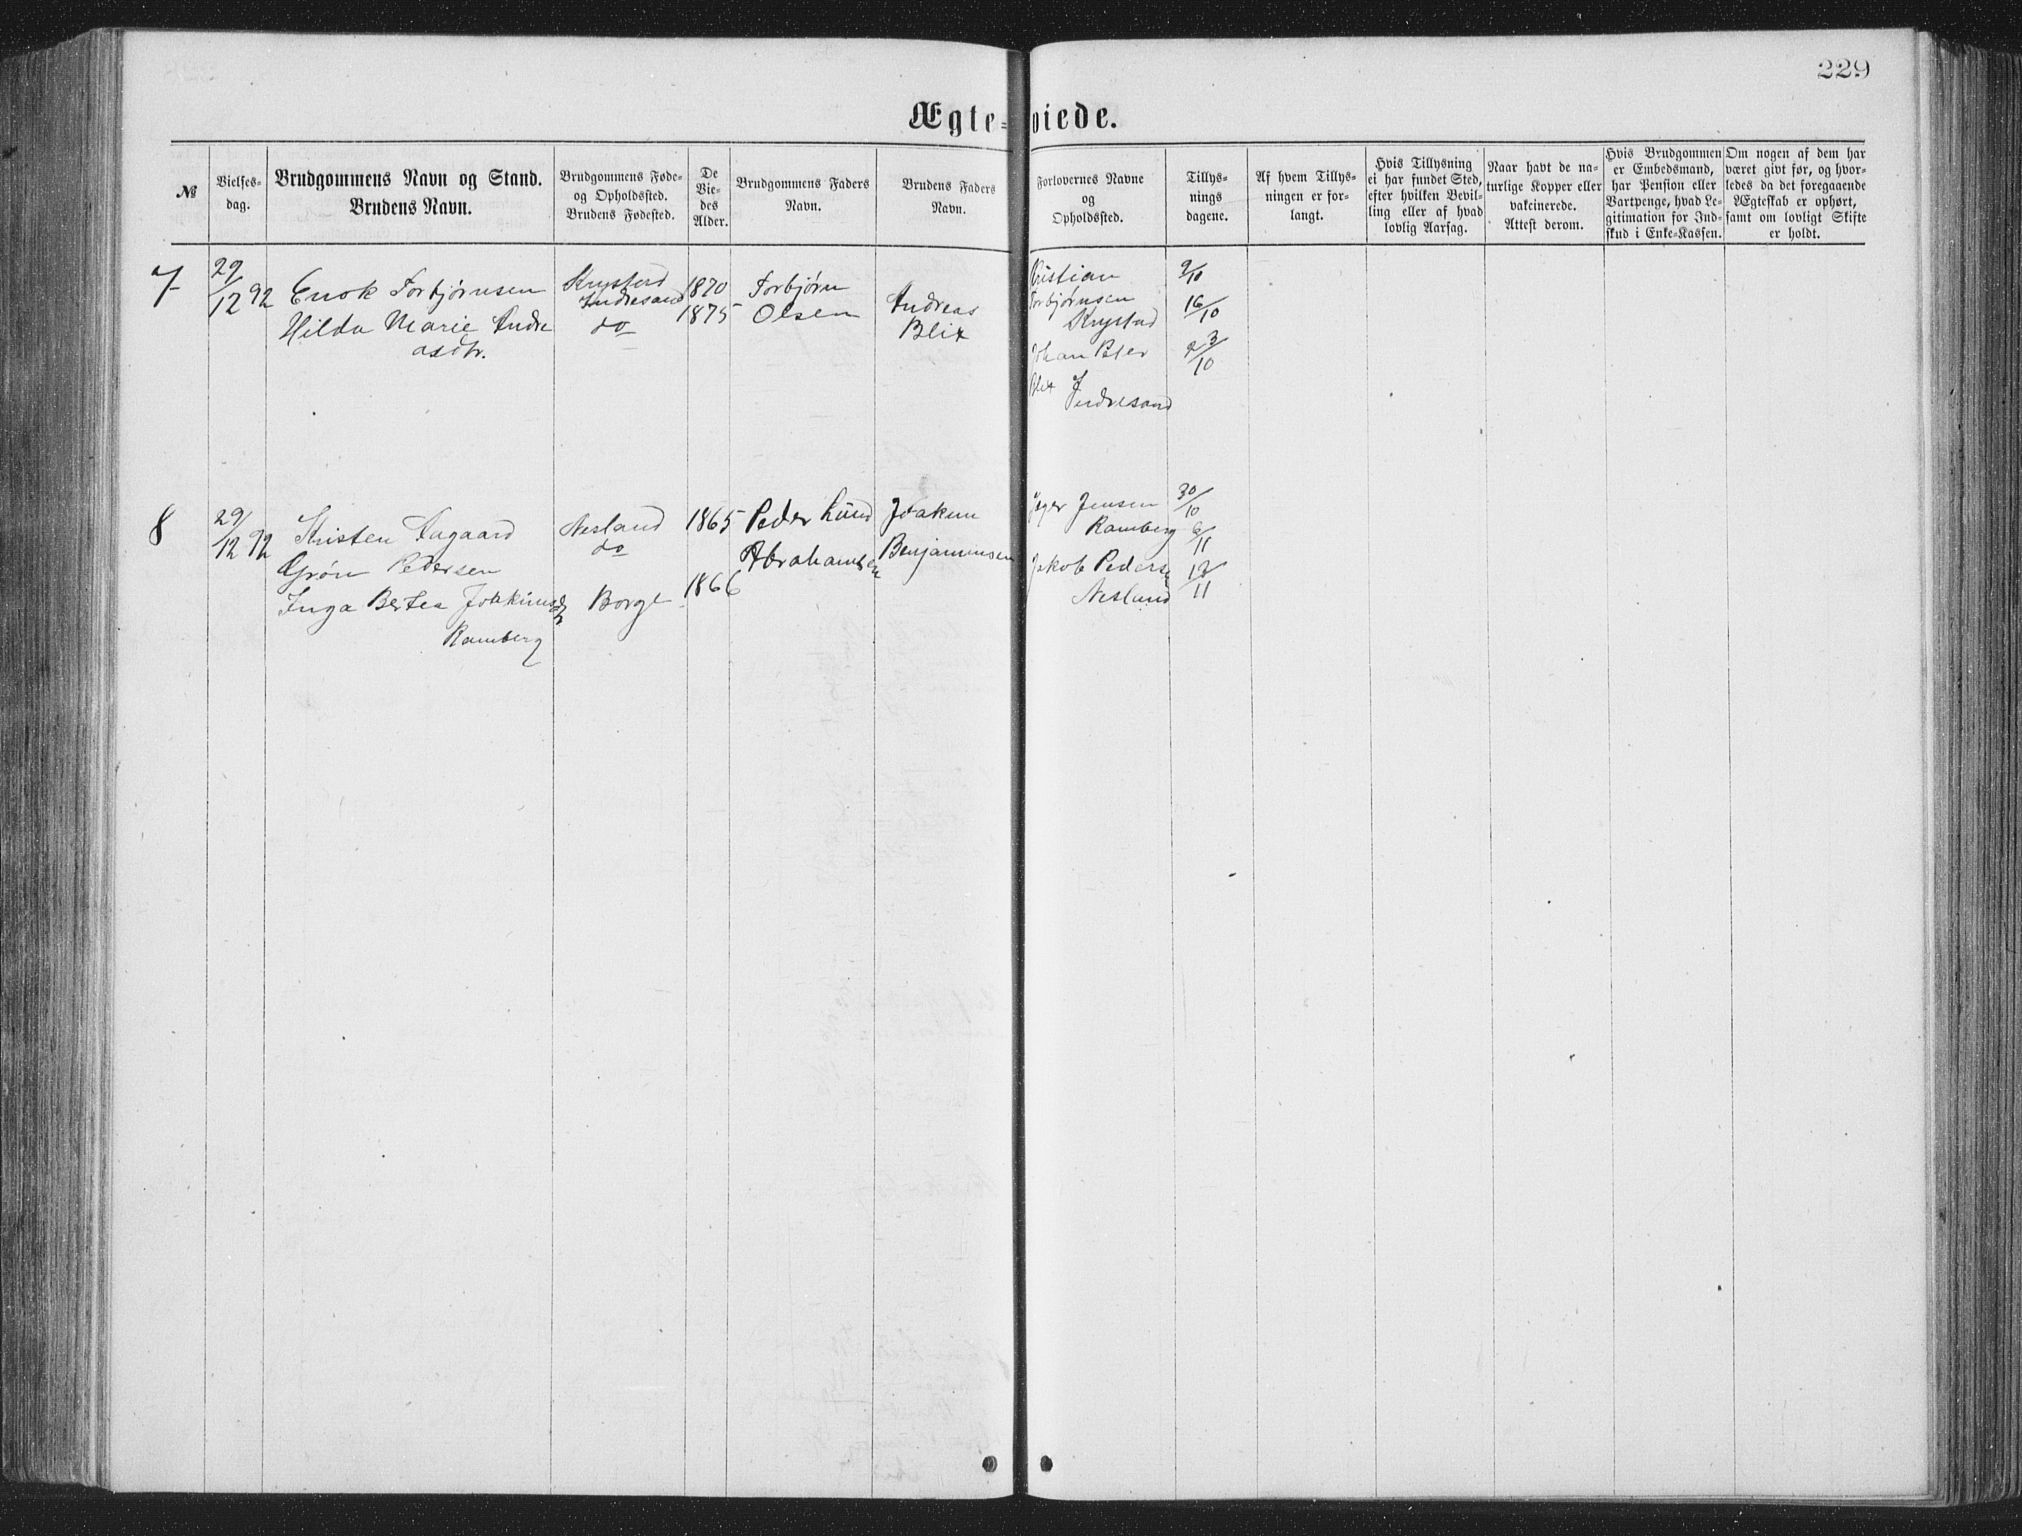 229
Ægte-viede.
№
Vielses-
dag.
Brudgommens Navn og Stand.
Brudens Navn.
Brudgommens Føde-
og Opholdssted.
Brudens Fødested.
De
Vie-
des
Alder.
Brudgommens Faders
Navn.
Brudens Faders
Navn.
Forlovernes Navne
og
Opholdssted.
Tillys-
nings
dagene.
Af hvem Tillys-
ningen er for-
langt.
Hvis Tillysning
ei har fundet Sted,
efter hvilken Bevil-
ling eller af hvad
lovlig Aarsag.
Naar havt de na-
turlige Kopper eller
vakcinerede.
Attest derom.
Hvis Brudgommen
er Embedsmand,
har Pension eller
Vartpenge, hvad Le-
gitimation for Ind-
skud i Enke-Kassen.
Om nogen af dem har
været givt før, og hvor-
ledes da det foregaaende
Ægteskab er ophørt,
samt om lovligt Skifte
er holdt.
7
29/12 92
Enok Torbjørnsen
Hilda Marie Andre
asdtr.
Krystad
Indresand
do
1870
1875
Torbjørn
Olsen
Andreas
Blix
Kristian
Torbjørnsen
Krystad
Johan Peter
Blix
Indresand
9/10
16/10
23/10
8
29/12 92
Kristen Aagaard
Grøn Pedersen
Inga Bertea Joakimsdtr
Ramberg
Nesland
do
Borge
1865
1866
Peder Lund
Abrahamsen
Joakim
Benjaminsen
Jeger Jensen
Ramberg
Jakob Pedersen
Nesland
30/10
6/11
13/11